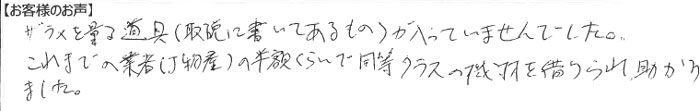 【お客様のお声】
ザラメを量る道具(取説に書いてあるもの)が入っていませんでした。
これまでの業者(J物産)の半額くらいで同等クラスの機材を借りられ、助かり
ました。